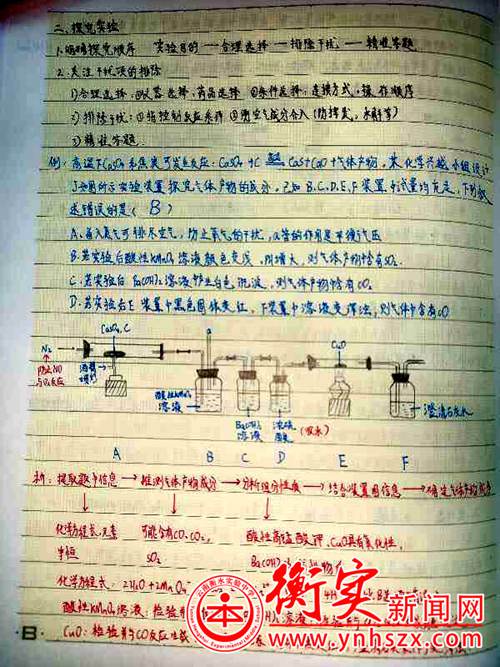 二、探究实验
1.明确探究顺序 实验目的——合理选择——排除干扰——精准答题
2.关注干扰项的排除
1)合理选择:①仪器选择,药品选择 ②条件选择:连接方式,操作顺序
2)排除干扰:①控制反应条件 ②空气成分介入(防挥发,水解等)
3)精准答题
例:高温下CaSO₄和焦炭可发生反应:CaSO₄+C 高温 CaS+CaO+气体产物,某化学兴趣小组设计
了如图所示实验装置探究气体产物的成分,已知B、C、D、E、F装置中试量均充足,下列叙
述错误的是(B)
A.通入氮气可排尽空气,防止氧气的干扰,a管的作用是平衡气压
B.若实验后酸性KMnO₄溶液颜色变浅,则气体产物中含有SO₂
C.若实验后Ba(OH)₂溶液中产生白色沉淀,则气体产物中含有CO₂
D.若实验后E装置中黑色固体变红,F装置中溶液变浑浊,则气体中含有CO
CaSO₄、C
a
CuO
N₂
酒精喷灯
酸性KMnO₄溶液
Ba(OH)₂溶液
浓硫酸
(吸水)
澄清石灰水
A B C D E F
析:提取题中信息→推测气体产物成分→分析组分性质→结合装置图信息→确定气体产物成分
化学方程式、元素 可能含有CO、CO₂、 酸性高锰酸钾、CuO具有氧化性,
守恒 SO₂ Ba(OH)₂
化学方程式:
酸性KMnO₄溶液:检验
CuO:检验并与CO反应生成
·B·
云南衡水实验中学
衡实新闻网
www.ynhszx.com